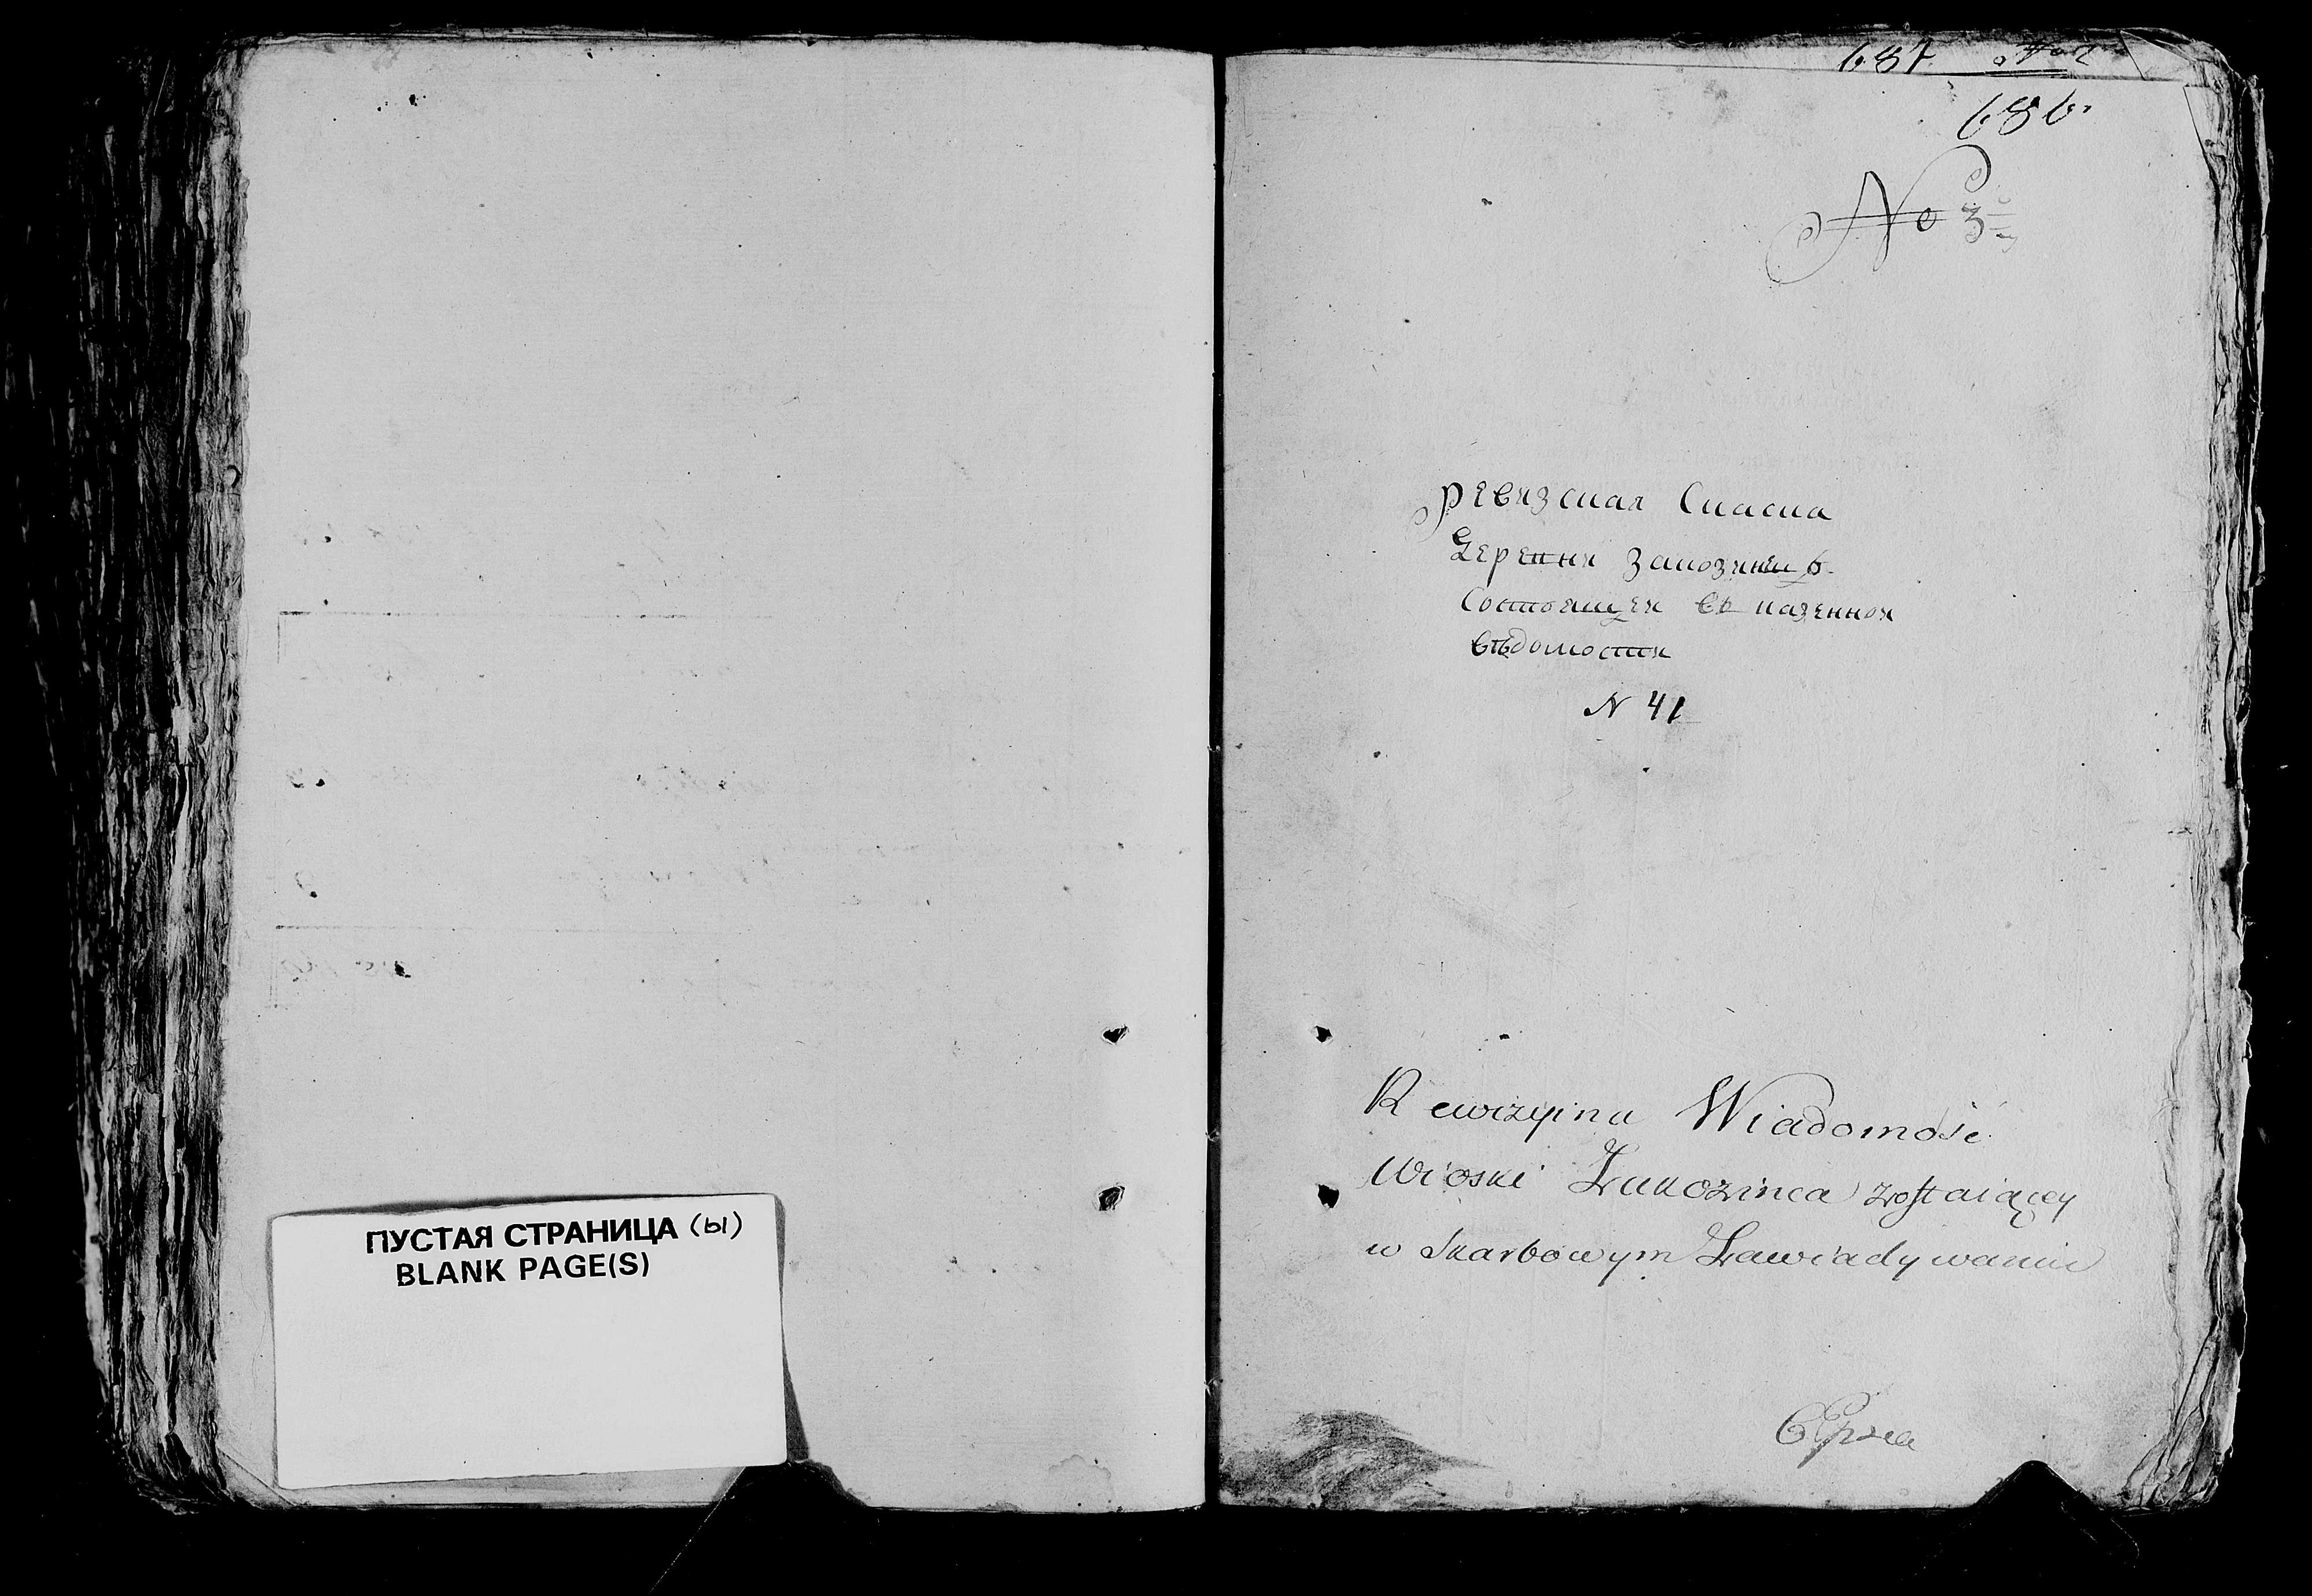 ПУСТАЯ СТРАНИЦА (ы)
BLANK PAGE(S)
687
686.
No 3
Ревизская Сказка
Деревни Закозинецъ
Состоящей въ казенной
вѣдомости
N 41
Rewizyina Wiadomość
Wioski Zakozinca zostaiącey
w Skarbowym Zawiadywaniu